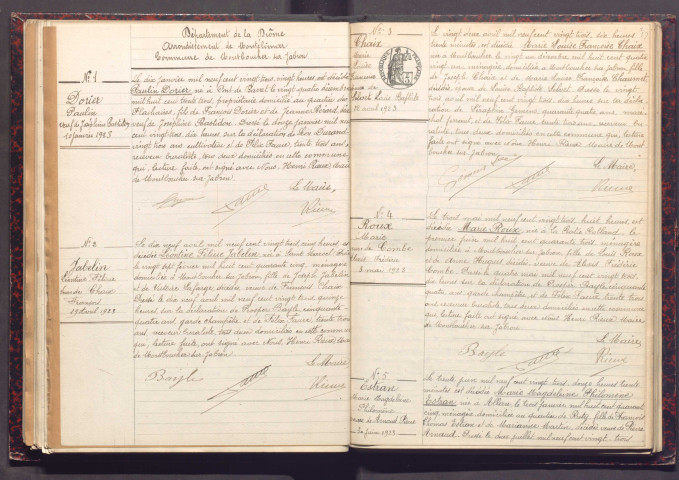 Département de la Drôme
Arrondissement de Montélimar
Commune de Montboucher sur Jabron
N° 1
Dorier
Paulin
10 janvier 1923
Le dix janvier mil neuf cent vingt trois, vingt heures, est décédé
Paulin Dorier, né à
mil huit cent trente trois, propriétaire domicilié au quartier des
fils de François Dorier et de Jeanne
veuf de Joséphine Dressé le onze janvier mil neuf
cent vingt trois, dix heures, sur la déclaration de Léon Durand
vingt trois ans cultivateur et de Félix Faure, trente trois ans,
receveur buraliste, tous deux domiciliés en cette commune
qui, lecture faite, ont signé avec Nous, Henri Rieme Maire
de Montboucher sur Jabron.
Le Maire,
Rieme
N° 2
Jabelin
Léontine Félicie
19 avril 1923
Le dix neuf avril mil neuf cent vingt trois cinq heures est
décédée Léontine Félicie Jabelin née à Saint Marcel
le vingt sept février mil huit cent quarante cinq, ménagère
domiciliée à Montboucher sur Jabron, fille de Joseph Jabelin
et de Victoire Lafarge décédés, veuve de Fernand Chaix
Dressé le dix neuf avril mil neuf cent vingt trois, quinze
heures sur la déclaration de Prosper Bayle, cinquante
quatre ans garde champêtre et de Félix Faure, trente trois
ans receveur buraliste, tous deux domiciliés en cette commune
qui, lecture faite, ont signé avec Nous Henri Rieme Maire
de Montboucher sur Jabron.
Le Maire
Bayle
Faure
Rieme
N° 3
Chaix
Marie
Louise
Françoise
Sibert Louis Baptiste
21 avril 1923
Le vingt un avril mil neuf cent vingt trois, dix heures
trente minutes, est décédée Marie Louise Françoise Chaix
née à Montboucher le vingt un décembre mil huit cent quatre
vingt un, ménagère domiciliée à Montboucher sur Jabron, fille
de Joseph Chaix et de Marie Louise Françoise Chaumet
décédés, épouse de Louis Baptiste Sibert Dressé le vingt
trois avril mil neuf cent vingt trois, dix heures sur la décla
ration de quarante quatre ans, maré
chal ferrant, et de Félix Faure, trente trois ans, receveur bu
raliste, tous deux domiciliés en cette commune qui, lecture
faite ont signé avec Nous Henri Rieme, Maire de Montbou
cher sur Jabron.
Le Maire,
Faure
Rieme
N° 4
Roux
Marie
veuve de Combe
3 mai 1923
Le trois mai mil neuf cent vingt trois, huit heures, est
décédée Marie Roux, née à la Motte Rolland, le
premier juin mil huit cent quarante trois, ménagère
domiciliée à Montboucher sur Jabron, fille de Louis Roux
et de Anne Huguet décédés, veuve de Combe. Dressé le quatre mai mil neuf cent vingt trois,
heures sur la déclaration de Prosper Bayle, cinquante
quatre ans, garde champêtre et de Félix Faure trente trois
ans receveur buraliste tous deux domiciliés en cette commune
qui, lecture faite ont signé avec Nous Henri Rieme Maire
de Montboucher sur Jabron.
Le Maire,
Bayle
Faure
Rieme
N° 5
Estran
Marie Magdeleine
Philomène
veuve de Arnaud Pierre
30 juin 1923
Le trente juin mil neuf cent vingt trois, onze heures trente
minutes est décédée Marie Magdeleine Philomène
Estran, née à Allan, le mil huit cent quarante
cinq, ménagère domiciliée au quartier de fille de François
Thomas Estran et de Marianne Martin décédés veuve de Pierre
Arnaud. Dressé le deux juillet mil neuf cent vingt trois